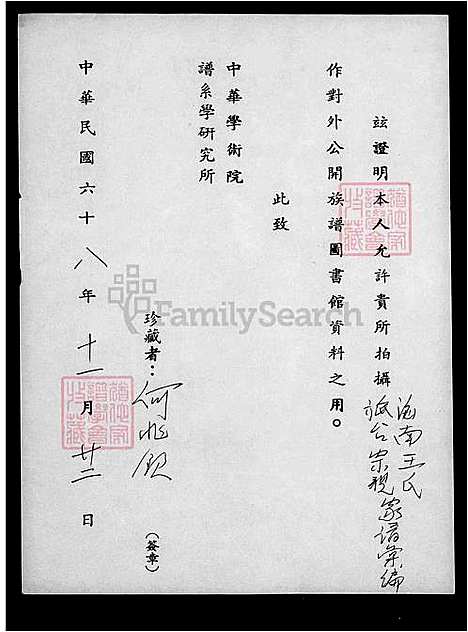 茲證明本人允許貴所拍攝海南王氏
旅台宗親家譜彙編
作對外公開族譜圖書館資料之用。
此致
中華學術院
譜系學研究所
珍藏者：何兆欽
（簽章）
中華民國六十八年十一月廿二日
FamilySearch